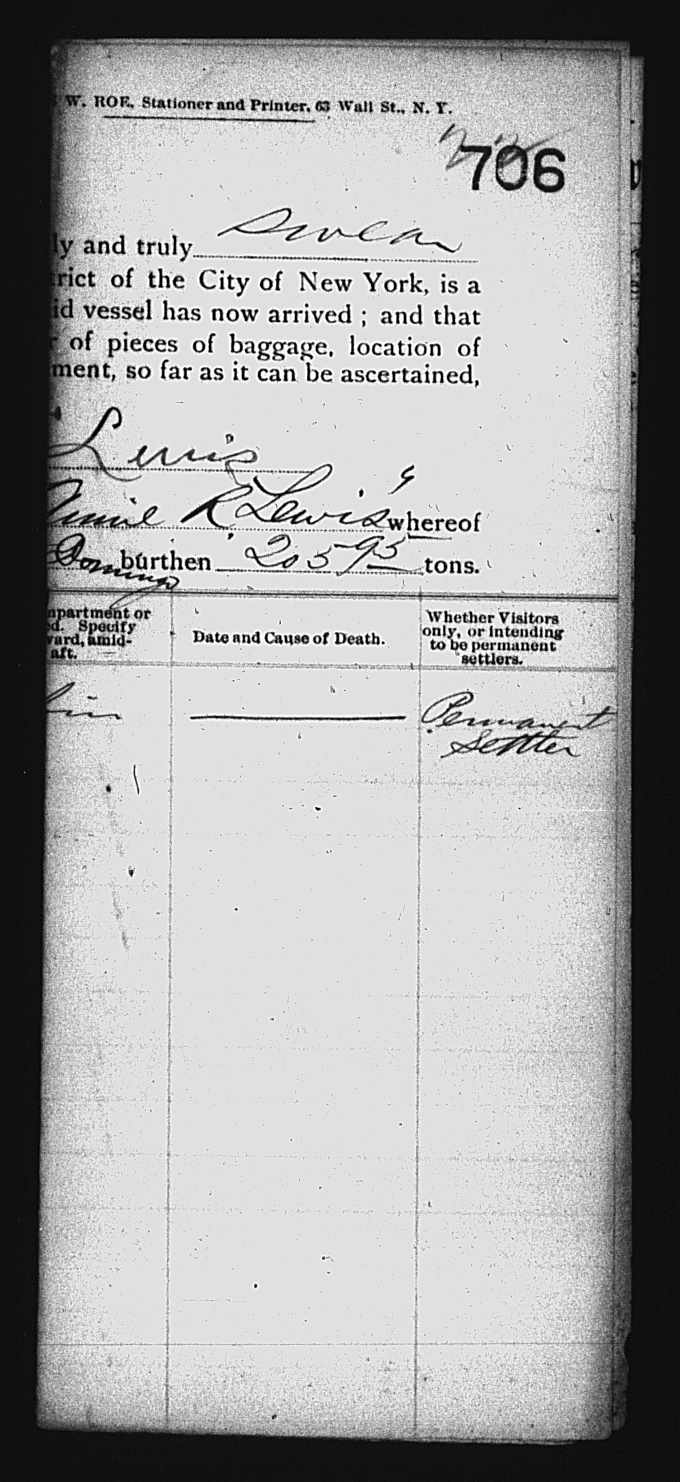 W. ROE, Stationer and Printer, 63 Wall St., N. Y.
706
ly and truly swear
rict of the City of New York, is a
id vessel has now arrived ; and that
r of pieces of baggage, location of
ment, so far as it can be ascertained,
Lewis
Annie R. Lewis" whereof
Domingo burthen 205 95 tons.
apartment or
d. Specify
ward, amid-
aft.
Date and Cause of Death.
Whether Visitors
only, or intending
to be permanent
settlers.
Permanent
Settler